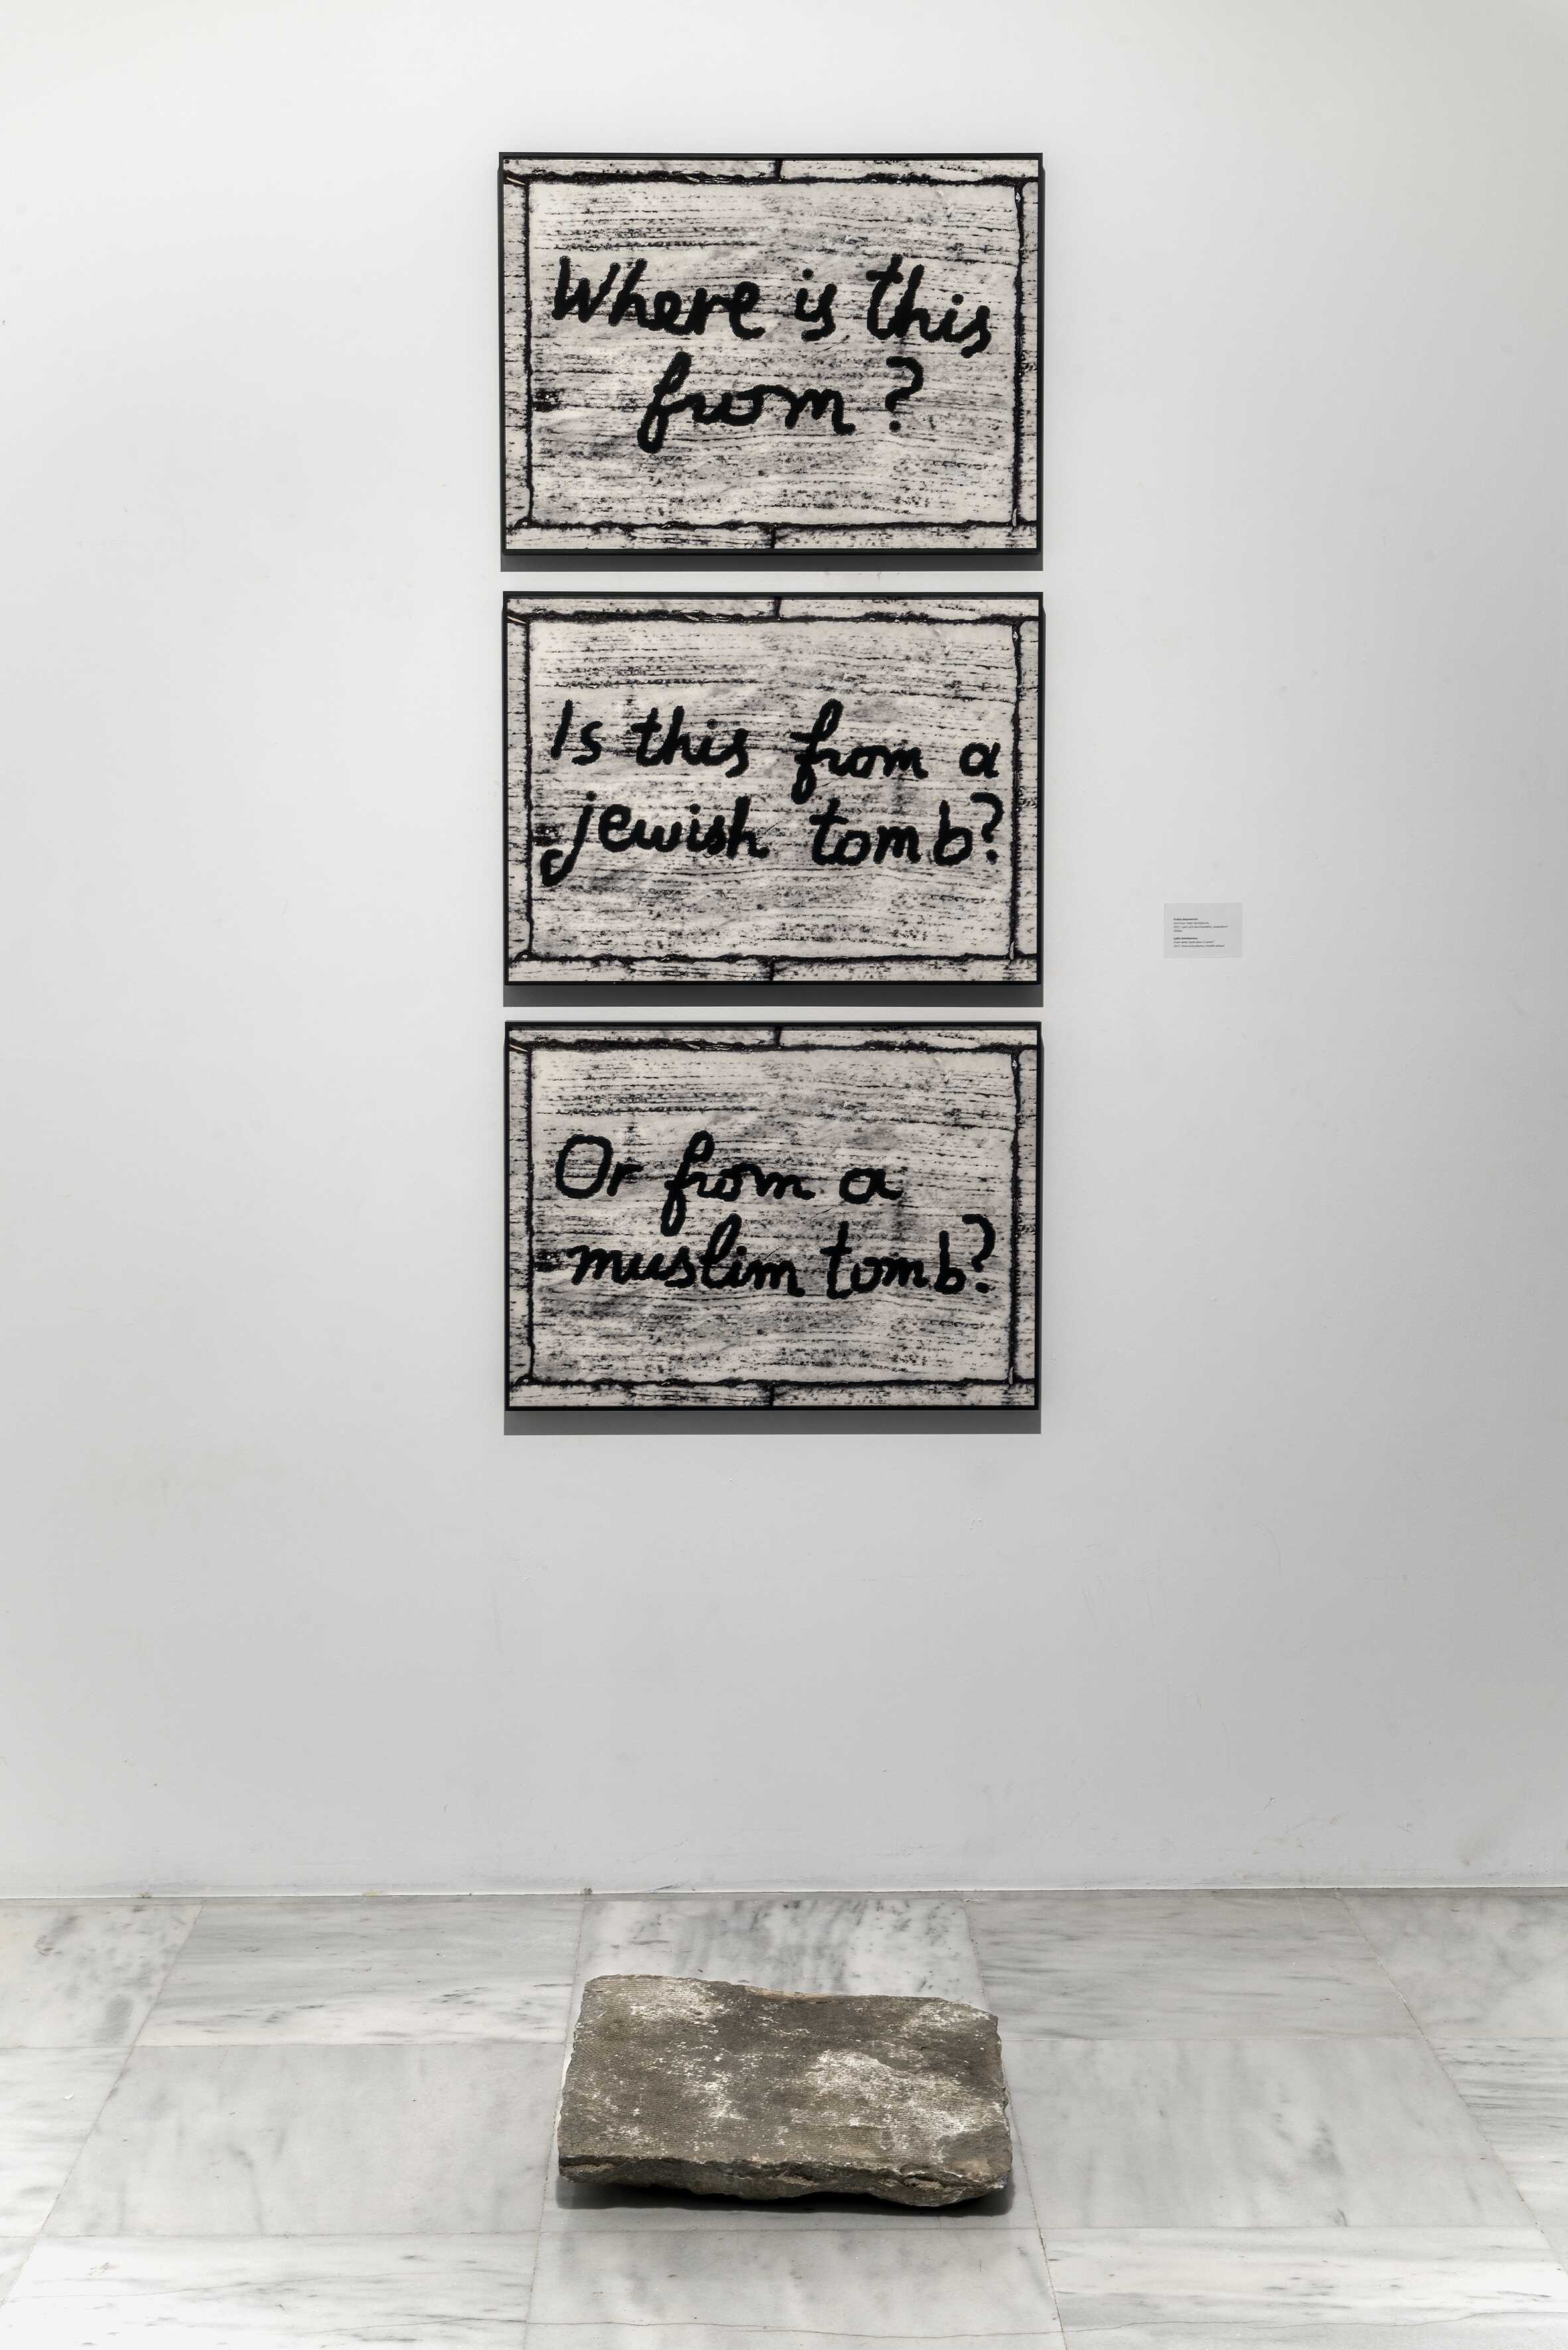 Where is this
from?
Is this from a
jewish tomb?
Or from a
muslim tomb?